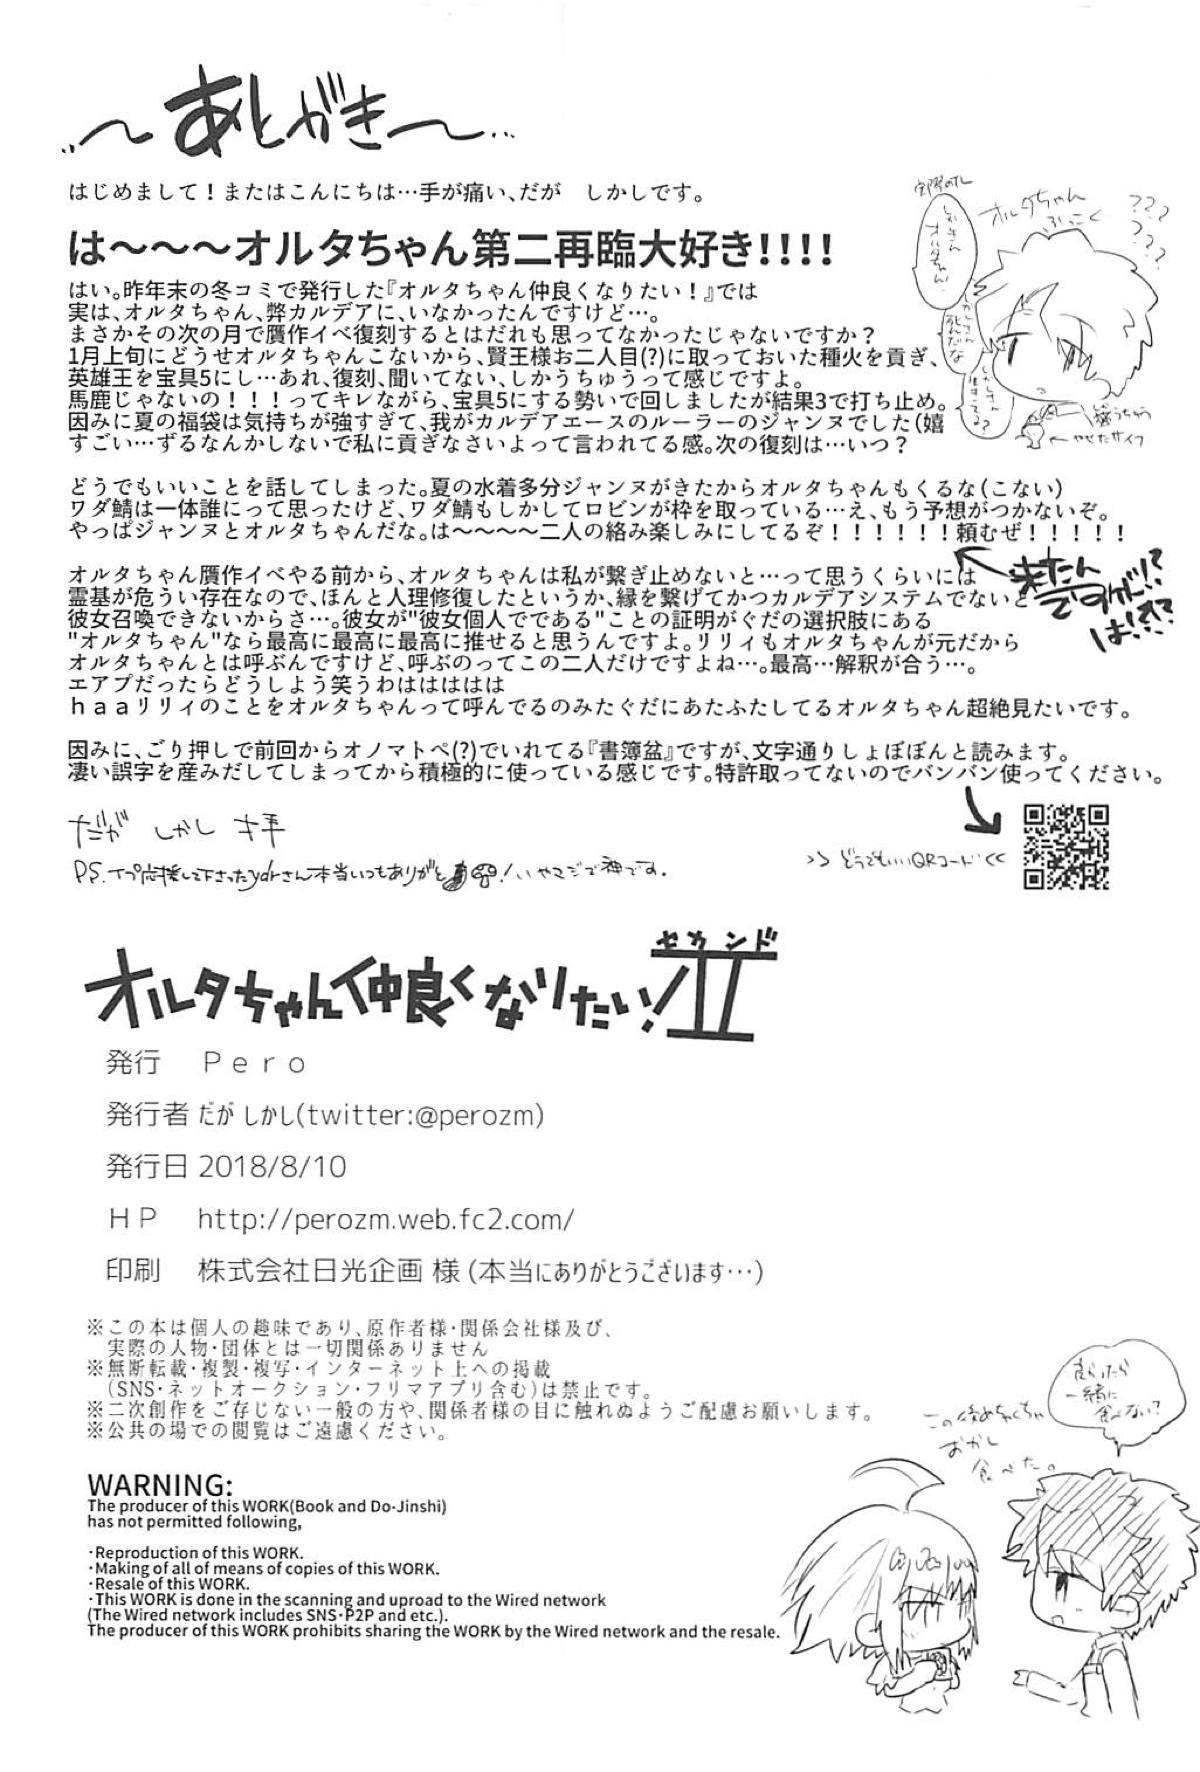 ～あとがき～
はじめまして！またはこんにちは…手が痛い、だが　しかしです。
は～～～オルタちゃん第二再臨大好き！！！！
はい。昨年末の冬コミで発行した『オルタちゃん仲良くなりたい！』では
実は、オルタちゃん、弊カルデアに、いなかったんですけど…。
まさかその次の月で贋作イベ復刻するとはだれも思ってなかったじゃないですか？
1月上旬にどうせオルタちゃんこないから、賢王様お二人目(?)に取っておいた種火を貢ぎ、
英雄王を宝具5にし…あれ、復刻、聞いてない、しかうちゅうって感じですよ。
馬鹿じゃないの！！！ってキレながら、宝具5にする勢いで回しましたが結果3で打ち止め。
因みに夏の福袋は気持ちが強すぎて、我がカルデアエースのルーラーのジャンヌでした(嬉
すごい…ずるなんかしないで私に貢ぎなさいよって言われてる感。次の復刻は…いつ？
どうでもいいことを話してしまった。夏の水着多分ジャンヌがきたからオルタちゃんもくるな(こない)
ワダ鯖は一体誰にって思ったけど、ワダ鯖もしかしてロビンが枠を取っている…え、もう予想がつかないぞ。
やっぱジャンヌとオルタちゃんだな。は～～～～二人の絡み楽しみにしてるぞ！！！！！！頼むぜ！！！！！
来たんですけど!?は!?!?!?
オルタちゃん贋作イベやる前から、オルタちゃんは私が繋ぎ止めないと…って思うくらいには
霊基が危うい存在なので、ほんと人理修復したというか、縁を繋げてかつカルデアシステムでないと
彼女召喚できないからさ…。彼女が"彼女個人でである"ことの証明がぐだの選択肢にある
"オルタちゃん"なら最高に最高に最高に推せると思うんですよ。リリィもオルタちゃんが元だから
オルタちゃんとは呼ぶんですけど、呼ぶのってこの二人だけですよね…。最高…解釈が合う…。
エアプだったらどうしよう笑うわははははは
ｈａａリリィのことをオルタちゃんって呼んでるのみたぐだにあたふたしてるオルタちゃん超絶見たいです。
因みに、ごり押しで前回からオノマトペ(?)でいれてる『書簿盆』ですが、文字通りしょぼぼんと読みます。
凄い誤字を産みだしてしまってから積極的に使っている感じです。特許取ってないのでバンバン使ってください。
だが しかし 拝
>> どうでもいいQRコード <<
オルタちゃん仲良くなりたい！II
セカンド
発行　Ｐｅｒｏ
発行者 だが しかし(twitter:@perozm)
発行日 2018/8/10
ＨＰ　http://perozm.web.fc2.com/
印刷　株式会社日光企画 様 (本当にありがとうございます…)
※この本は個人の趣味であり、原作者様・関係会社様及び、
実際の人物・団体とは一切関係ありません
※無断転載・複製・複写・インターネット上への掲載
(SNS・ネットオークション・フリマアプリ含む)は禁止です。
※二次創作をご存じない一般の方や、関係者様の目に触れぬようご配慮お願いします。
※公共の場での閲覧はご遠慮ください。
WARNING:
The producer of this WORK(Book and Do-Jinshi)
has not permitted following,
・Reproduction of this WORK.
・Making of all of means of copies of this WORK.
・Resale of this WORK.
・This WORK is done in the scanning and uproad to the Wired network
(The Wired network includes SNS・P2P and etc.).
The producer of this WORK prohibits sharing the WORK by the Wired network and the resale.
良かったら
一緒に
食べない？
この後めちゃくちゃ
おかし
食べた。